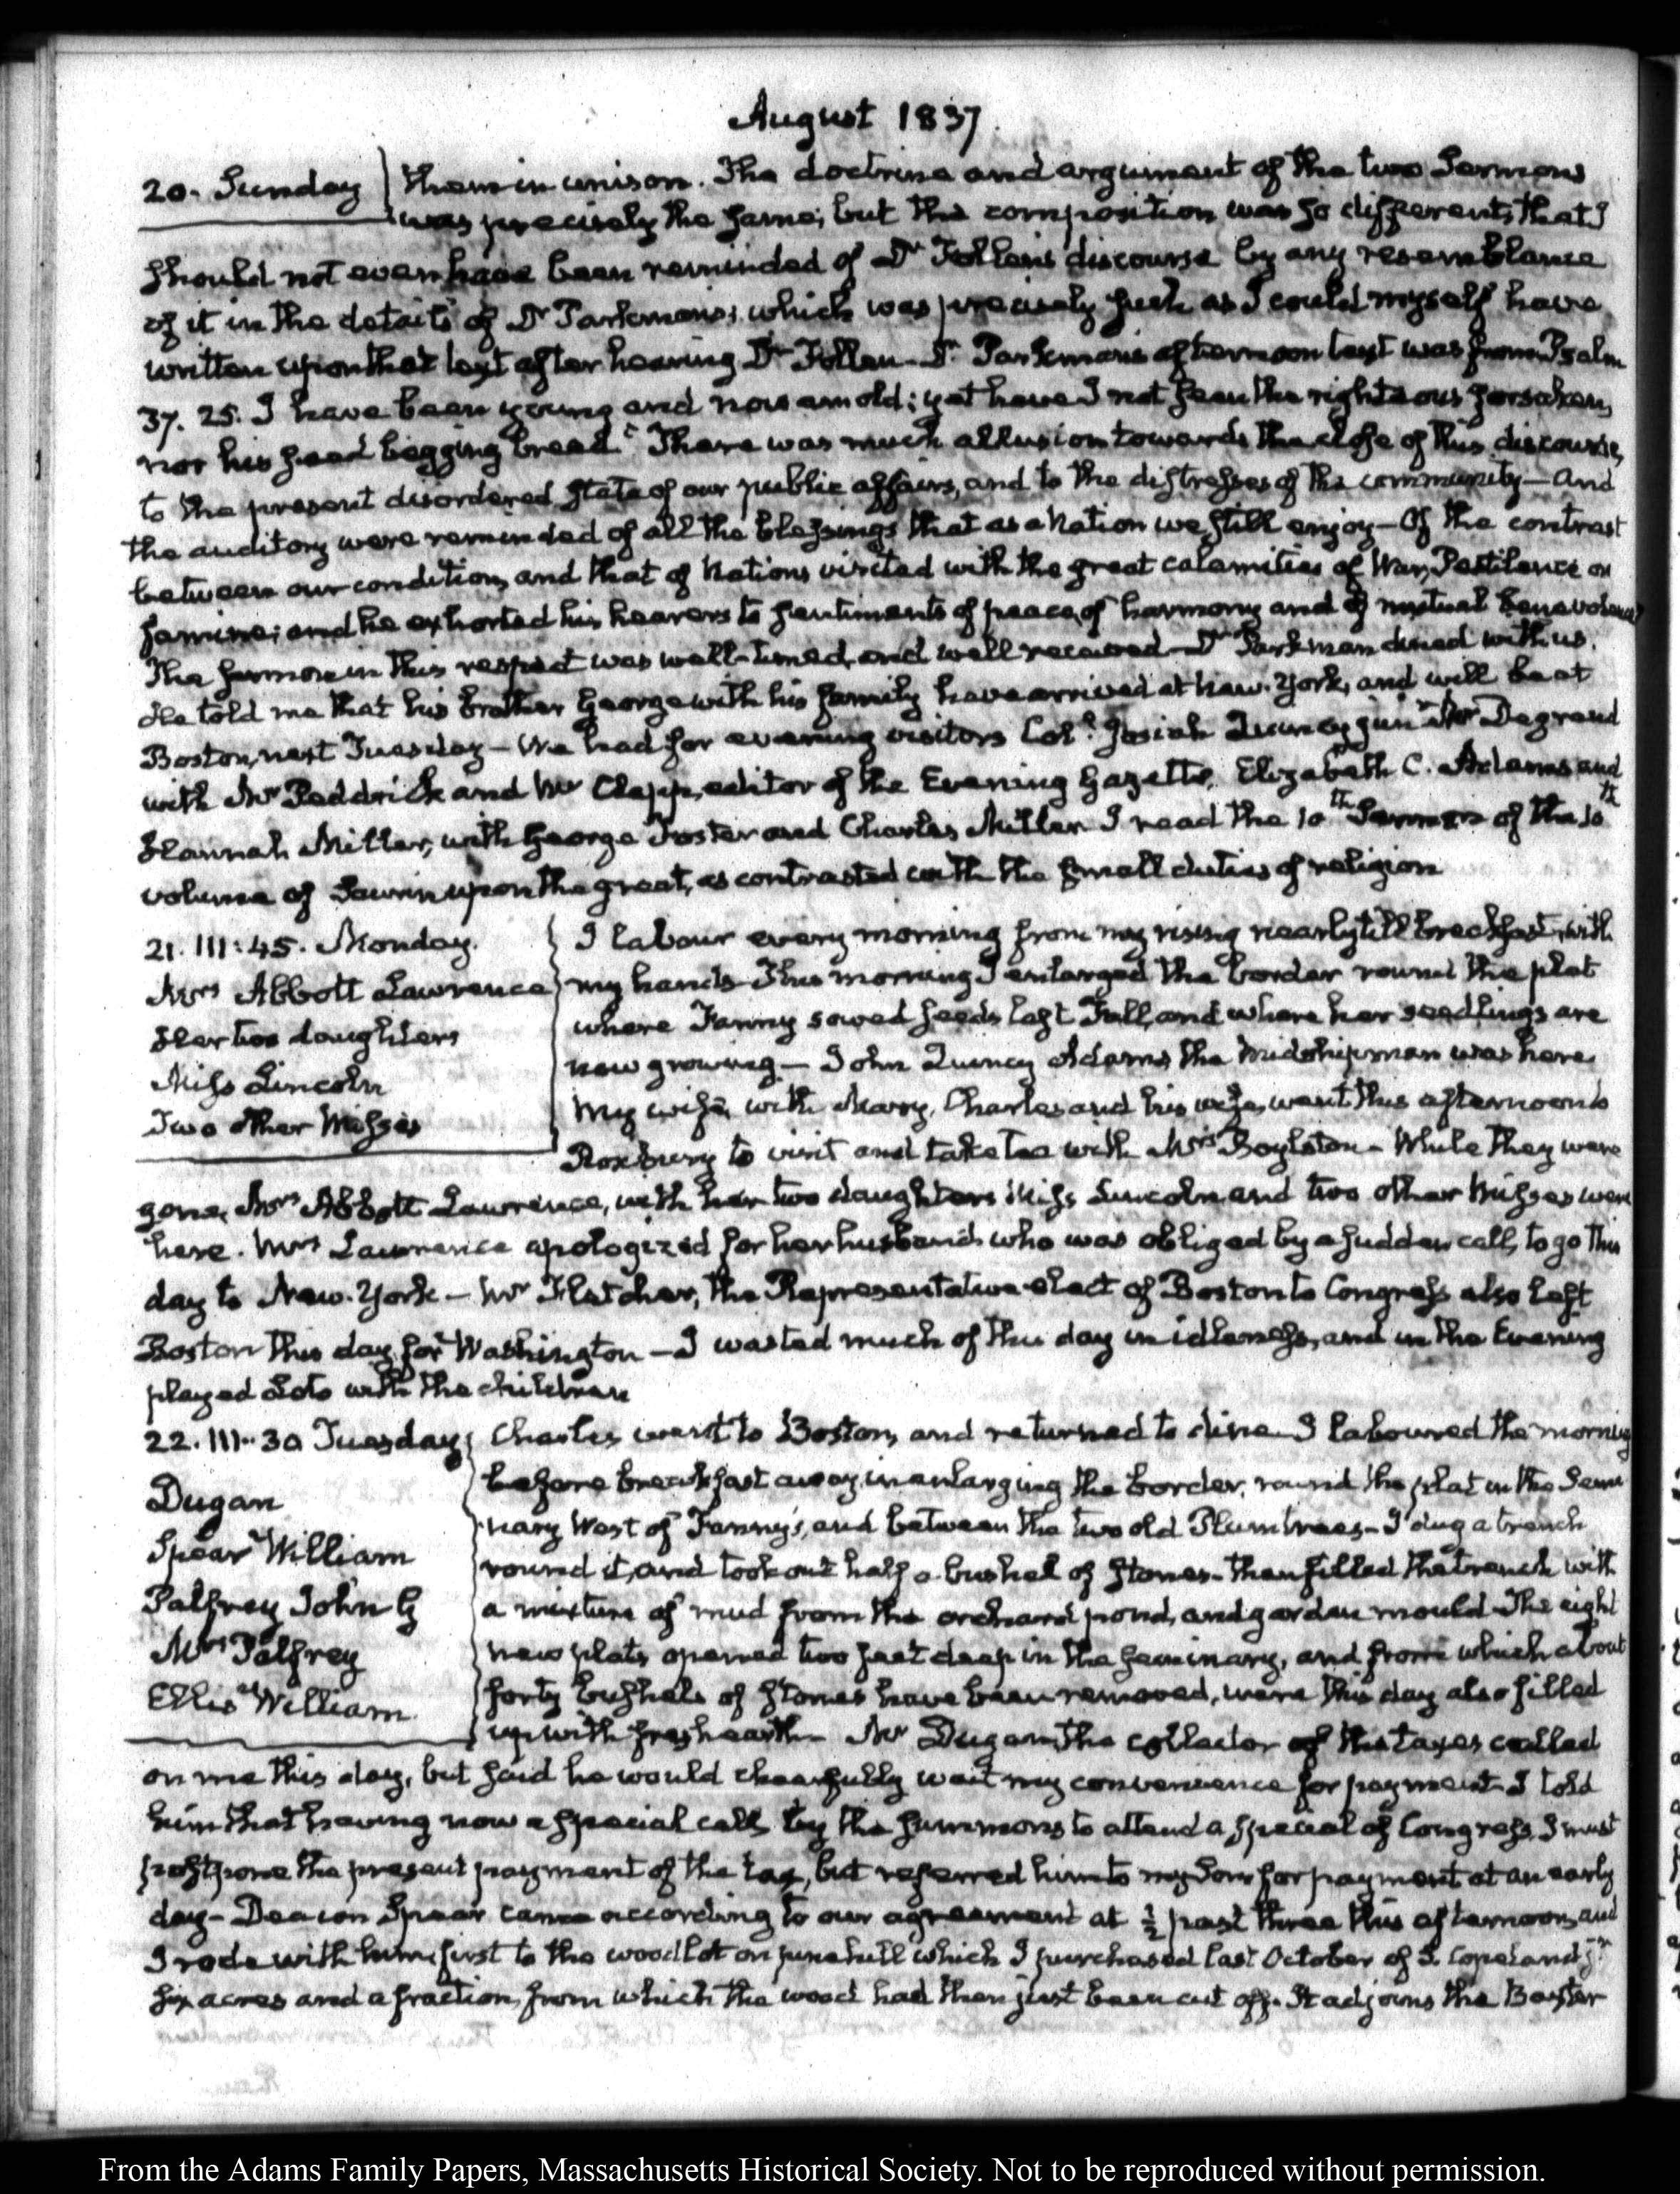 August 1837.
20. Sunday
them in unison. The doctrine and argument of the two Sermons
was precisely the same; but the composition was so different, that I
should not even have been reminded of Dr Follen's discourse by any resemblance
of it in the details of Dr Parkman's; which was precisely such as I could myself have
written upon that text after hearing Dr Follen - Dr Parkman's afternoon text was from Psalm
37. 25. I have been young and now am old; yet have I not seen the righteous forsaken,
nor his seed begging bread" There was much allusion towards the close of this discourse,
to the present disordered state of our public affairs, and to the distresses of the community - And
the auditory were reminded of all the blessings that as a Nation we still enjoy - Of the contrast
between our condition, and that of Nations visited with the great calamities of War, Pestilence or
famine; and he exhorted his hearers to sentiments of peace, of harmony and of mutual benevolence
The sermon in this respect was well-timed, and well received - Dr Parkman dined with us.
He told me that his brother George with his family have arrived at New-York, and will be at
Boston, next Tuesday - We had for evening visitors Coll. Josiah Quincy junr Mr Degrand
with Mr Peddrick and Mr Clapp, editor of the Evening Gazette, Elizabeth C. Adams and
Hannah Miller, with George Foster and Charles Miller. I read the 10th Sermon of the 10th
volume of Saurin upon the great, as contrasted with the small duties of religion
21. III:45. Monday.
Mrs Abbott Lawrence
Her two daughters
Miss Lincoln
Two other Misses
I labour every morning from my rising nearly till breakfast, with
my hands - This morning I enlarged the border round the plat
where Fanny sowed seeds last Fall, and where her seedlings are
now growing - John Quincy Adams the Midshipman was here.
My wife, with Mary, Charles and his wife, went this afternoon to
Roxbury to visit and take tea with Mrs Boylston - While they were
gone, Mrs Abbott Lawrence, with her two daughters Miss Lincoln and two other Misses were
here. Mrs Lawrence apologized for her husband who was obliged by a sudden call, to go this
day to New-York - Mr Fletcher, the Representative elect of Boston to Congress also left
Boston this day for Washington - I wasted much of this day in idleness, and in the Evening
played Loto with the children
22. III:30 Tuesday
Dugan
Spear William
Palfrey John G
Mrs Palfrey
Ellis William.
Charles went to Boston, and returned to dine. I laboured the morning
before breakfast away in enlarging the border, round the plat in the Semi
nary West of Fanny's, and between the two old Plumtrees - I dug a trench
round it, and took out half a bushel of stones - then filled the trench with
a mixture of mud from the orchard pond, and garden mould - The eight
new plats opened two feet deep in the seminary, and from which about
forty bushels of stones have been removed, were this day also filled
up with fresh earth - Mr Dugan, the collector of the taxes called
on me this day, but said he would cheerfully wait my convenience for payment - I told
him that having now a special call, by the summons to attend a special of Congress, I must
postpone the present payment of the tax, but referred him to my Son for payment at an early
day - Deacon Spear came according to our agreement at ½ past three this afternoon, and
I rode with him, first to the woodlot on pine hill which I purchased last October of S. Copeland jr
six acres and a fraction, from which the wood had then just been cut off. It adjoins the Baxter
From the Adams Family Papers, Massachusetts Historical Society. Not to be reproduced without permission.